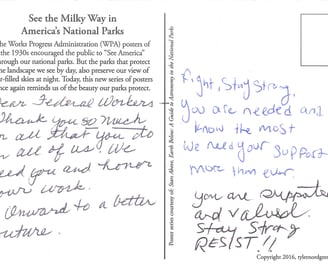 See the Milky Way in
America's National Parks
he Works Progress Administration (WPA) posters of
the 1930s encouraged the public to "See America"
hrough our national parks. But the parks that protect
he landscape we see by day, also preserve our view of
r-filled skies at night. Today, this new series of posters
nce again reminds us of the beauty our parks protect.
ear Federal Workers
Thank you so much
or all that you do
or all of us! We
eed you and honor
our work.
Onward to a better
uture.
Poster series courtesy of: Stars Above, Earth Below: A Guide to Astronomy in the National Parks
Fight, Stay Strong,
you are needed and
know the most
we need your support
more than ever.
you are supported
and valued.
Stay Strong
RESIST!!
Copyright 2016, tylernordgre